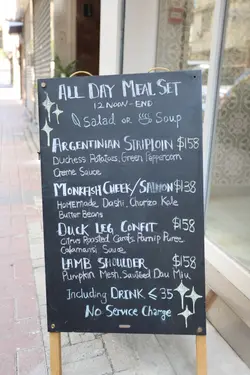 ALL DAY MEAL SET
12 NOON - END
Salad OR Soup
ARGENTINIAN SIRIPLOIN $158
Duchess Potatoes, Green Peppercorn
Creme Sauce
MONKFISH CHEEK/SALMON $138
Homemade Dashi, Chorizo Kale
Butter Beans
DUCK LEG CONFIT $158
Citrus Roasted Carrots, Parnip Puree
Calamansi Sauce
LAMB SHOULDER $158
Pumpkin Mesh, Sauteed Dau Miu
Including DRINK ≤ 35
No Service Charge